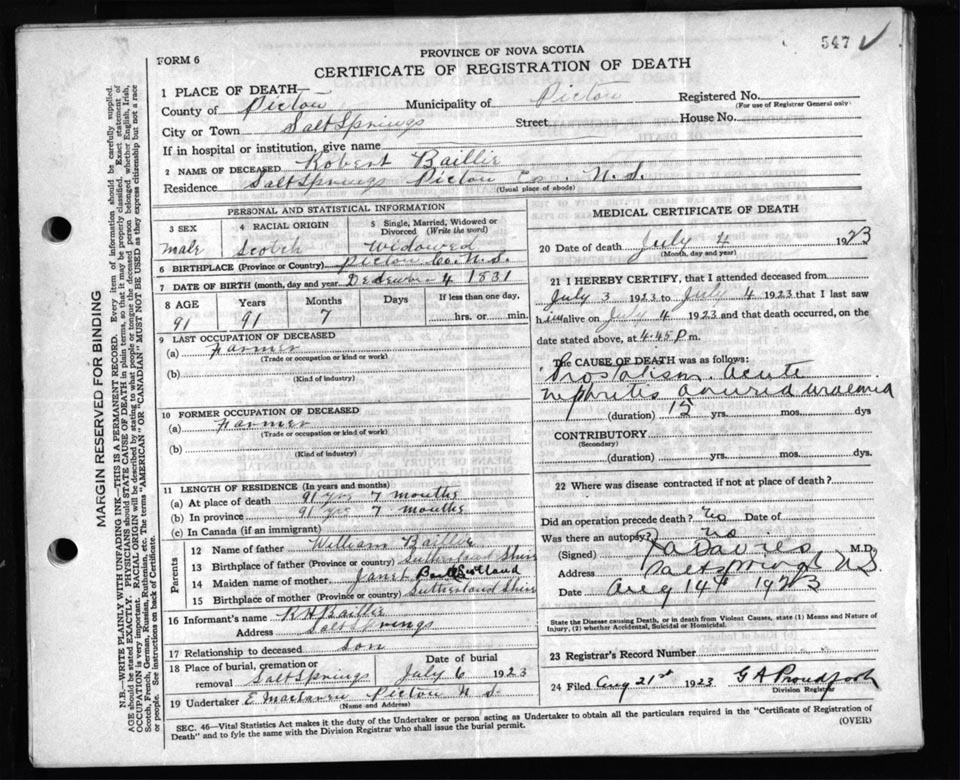 547 ✓
FORM 6
PROVINCE OF NOVA SCOTIA
CERTIFICATE OF REGISTRATION OF DEATH
1 PLACE OF DEATH
County of Pictou Municipality of Pictou Registered No.
(For use of Registrar General only)
City or Town Salt Springs Street House No.
If in hospital or institution, give name
2 NAME OF DECEASED Robert Baillie
Residence Salt Springs Pictou Co. N. S.
(Usual place of abode)
PERSONAL AND STATISTICAL INFORMATION
3 SEX 4 RACIAL ORIGIN 5 Single, Married, Widowed or Divorced (Write the word)
male Scotch Widowed
6 BIRTHPLACE (Province or Country) Pictou Co. N.S.
7 DATE OF BIRTH (month, day and year) December 4 1831
8 AGE Years Months Days If less than one day,
91 91 7 hrs. or min.
9 LAST OCCUPATION OF DECEASED
(a) Farmer
(Trade or occupation or kind or work)
(b)
(Kind of industry)
10 FORMER OCCUPATION OF DECEASED
(a) Farmer
(Trade or occupation or kind of work)
(b)
(Kind of industry)
11 LENGTH OF RESIDENCE (In years and months)
(a) At place of death 91 yrs 7 months
(b) In province 91 yrs 7 months
(c) In Canada (if an immigrant)
Parents
12 Name of father William Baillie
13 Birthplace of father (Province or country) Sutherland Shire
14 Maiden name of mother Janet Sutherland
15 Birthplace of mother (Province or country) Sutherland Shire
16 Informant's name R H Baillie
Address Salt Springs
17 Relationship to deceased Son
18 Place of burial, cremation or removal Salt Springs Date of burial July 6 1923
19 Undertaker E Maclaren Pictou N S.
(Name and Address)
MEDICAL CERTIFICATE OF DEATH
20 Date of death July 4 1923
(Month, day and year)
21 I HEREBY CERTIFY, that I attended deceased from
July 3 1923 to July 4 1923 that I last saw
him alive on July 4 1923 and that death occurred, on
the date stated above, at 4.45 P m.
The CAUSE OF DEATH was as follows:
Prostatism. Acute
nephritis uraemia
(duration) 15 yrs. mos. dys
CONTRIBUTORY
(Secondary)
(duration) yrs. mos. dys.
22 Where was disease contracted if not at place of death?
Did an operation precede death? no Date of
Was there an autopsy? no
(Signed) Davies M.D.
Address Saltsprings N S
Date Aug 14th 1923
State the Disease causing Death, or in death from Violent Causes, state (1) Means and Nature of Injury, (2) whether Accidental, Suicidal or Homicidal.
23 Registrar's Record Number
24 Filed Aug 21st 1923 G A Proudfoot
Division Registrar
SEC. 46—Vital Statistics Act makes it the duty of the Undertaker or person acting as Undertaker to obtain all the particulars required in the "Certificate of Registration of
Death" and to fyle the same with the Division Registrar who shall issue the burial permit.
(OVER)
MARGIN RESERVED FOR BINDING
N.B.—WRITE PLAINLY WITH UNFADING INK—THIS IS A PERMANENT RECORD. Every item of information should be carefully supplied.
AGE should be stated EXACTLY. PHYSICIANS should STATE CAUSE OF DEATH in plain terms, so that it may be properly classified. Exact statement of
OCCUPATION is very important. RACIAL ORIGIN will be described by stating to what people or tongue the deceased person belonged whether English, Irish,
Scotch, French, German, Russian, Ruthenian, etc. The terms "AMERICAN" OR "CANADIAN" MUST NOT BE USED as they express citizenship but not a race
or people. See instructions on back of Certificate.